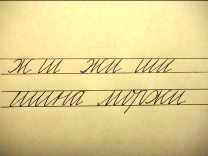 ж ш жи ши
шина моржи